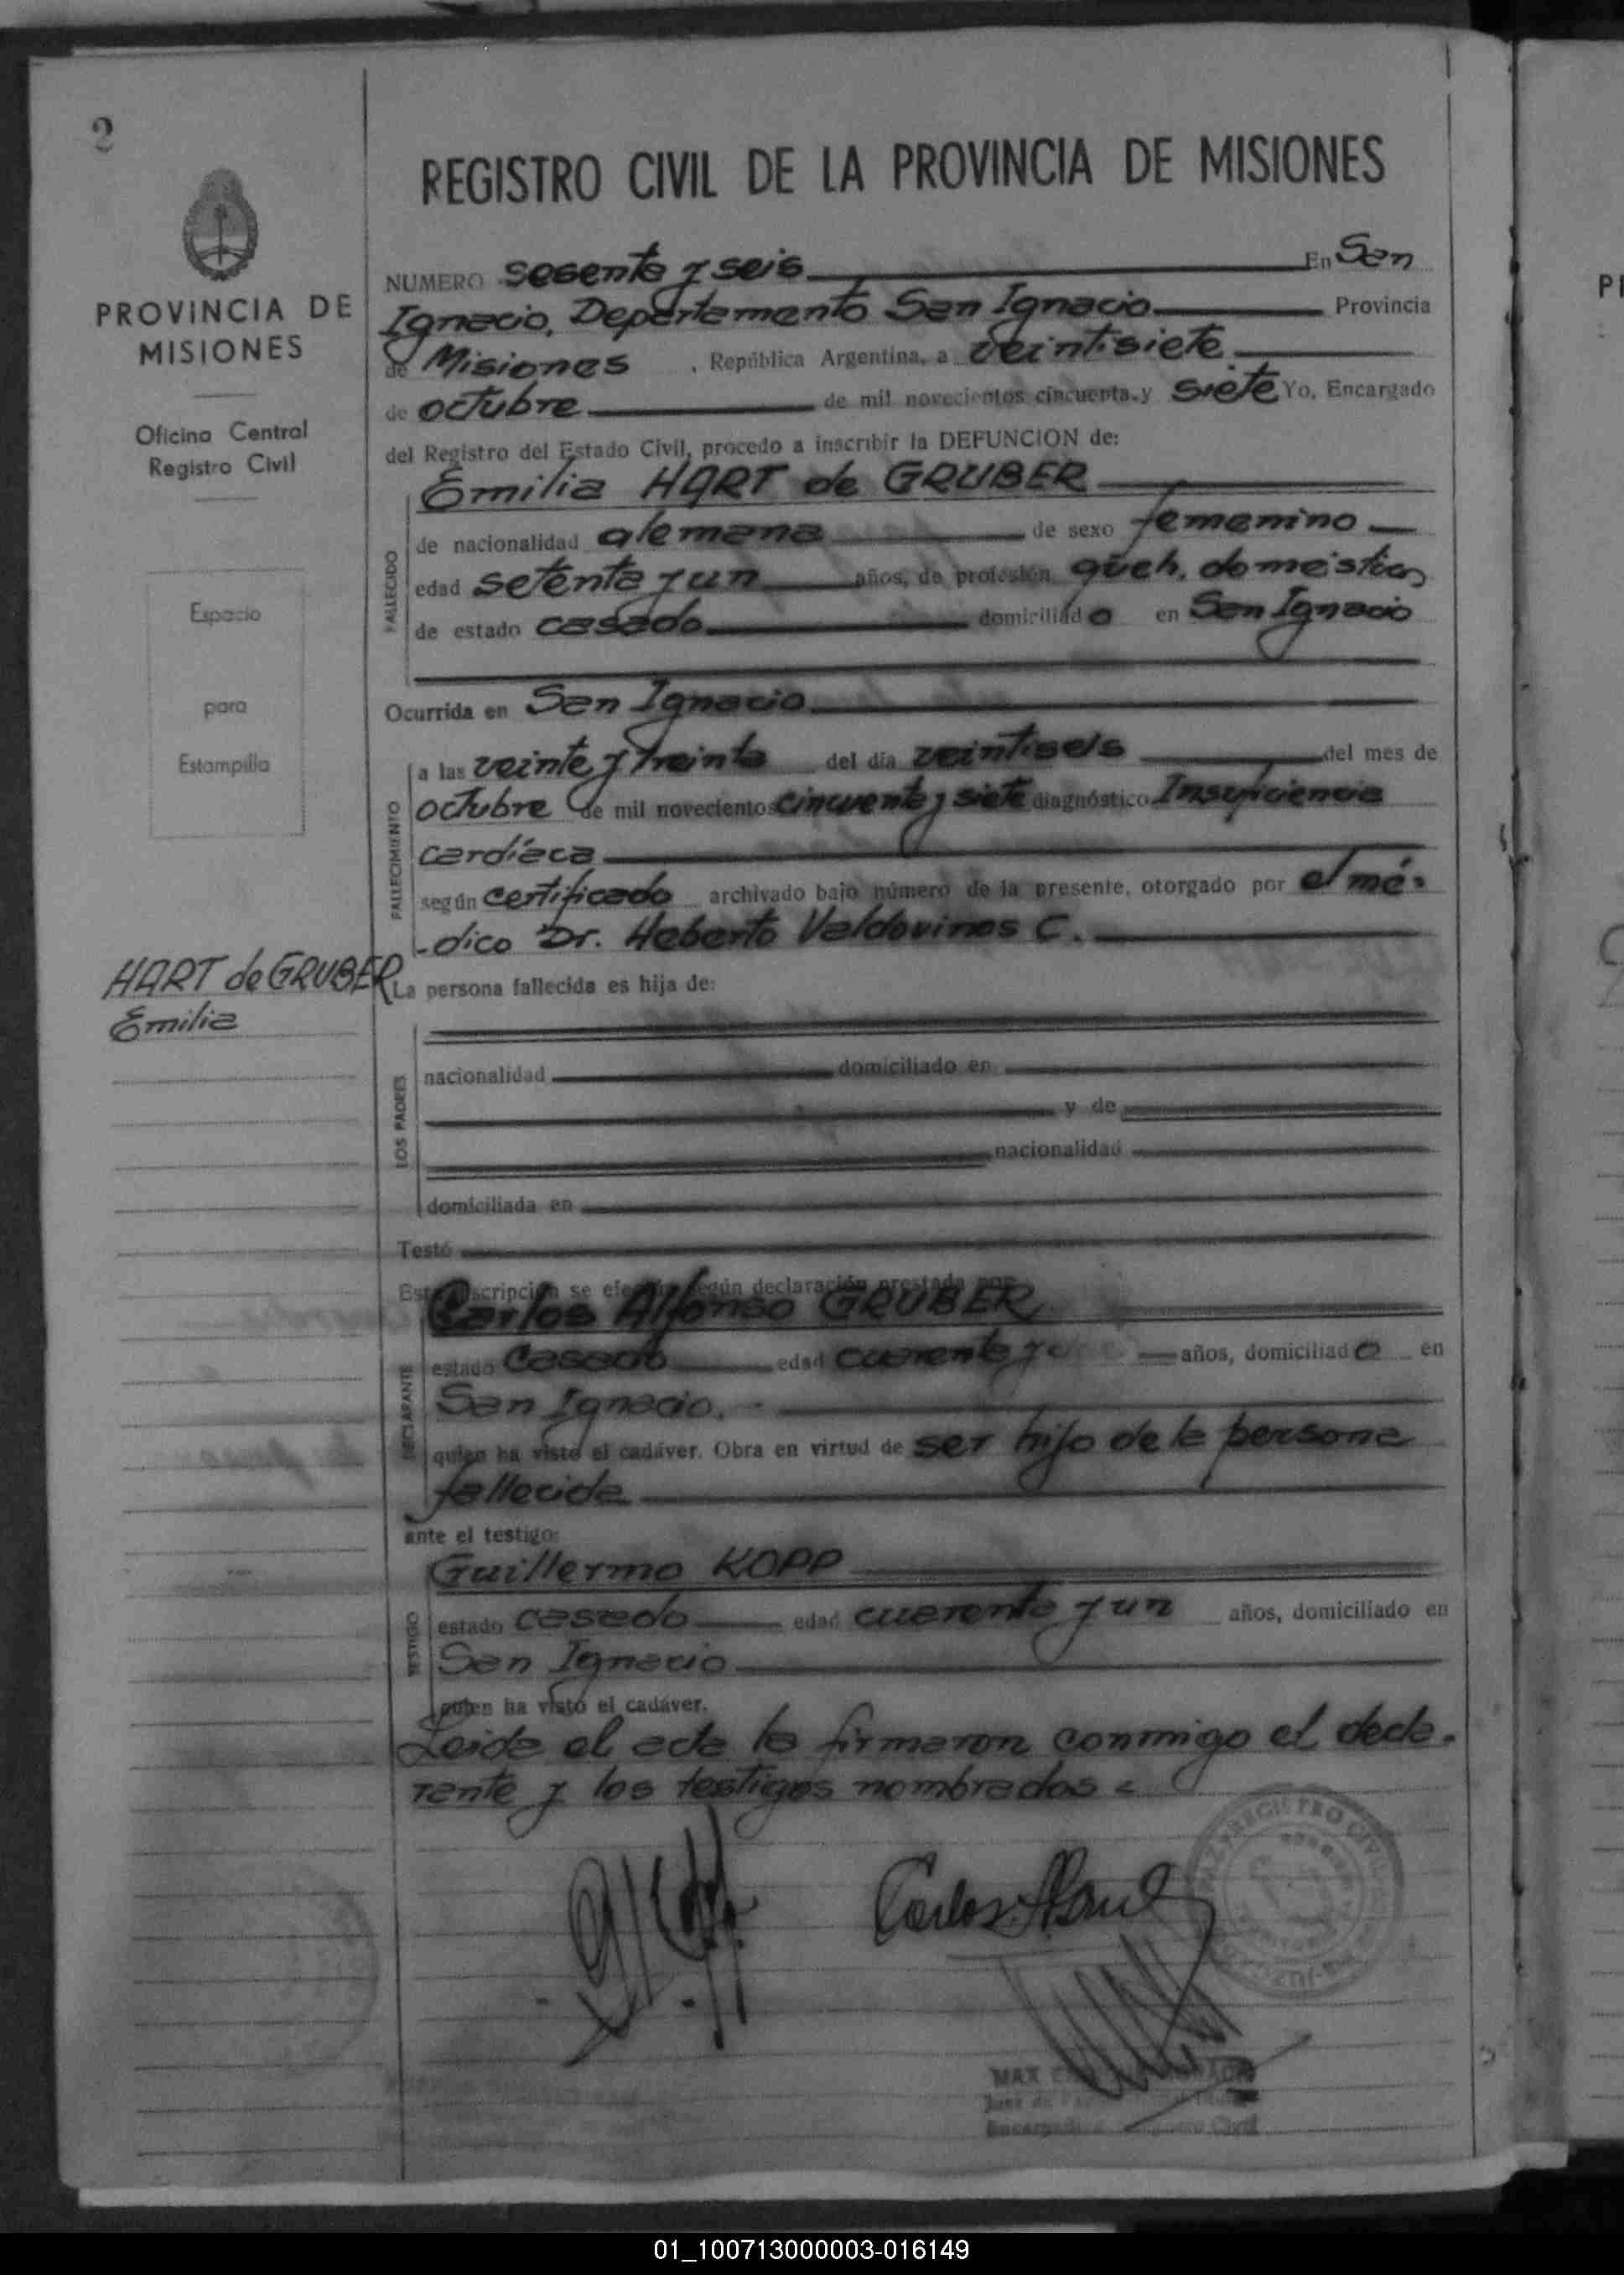 2
REGISTRO CIVIL DE LA PROVINCIA DE MISIONES
PROVINCIA DE
MISIONES
Oficina Central
Registro Civil
Espacio
para
Estampilla
HART de GRUBER
Emilia
NUMERO sesenta y seis En San
Ignacio, Departamento San Ignacio Provincia
de Misiones, República Argentina, a veintisiete
de octubre de mil novecientos cincuenta y siete Yo, Encargado
del Registro del Estado Civil, procedo a inscribir la DEFUNCION de:
Emilia HART de GRUBER
FALLECIDO
de nacionalidad alemana de sexo femenino
edad setenta y un años, de profesión queh. domésticos
de estado casado domiciliado en San Ignacio
Ocurrida en San Ignacio
FALLECIMIENTO
a las veinte y treinta del día veintiseis del mes de
octubre de mil novecientos cincuenta y siete diagnóstico Insuficiencia
cardíaca
según certificado archivado bajo número de la presente, otorgado por el mé-
-dico Dr. Heberto Valdovinos C.
La persona fallecida es hija de:
LOS PADRES
nacionalidad domiciliado en
y de
nacionalidad
domiciliada en
Testó
Esta inscripción se efectúa según declaración prestada por
Carlos Alfonso GRUBER
DECLARANTE
estado casado edad cuarenta y años, domiciliado en
San Ignacio.
quien ha visto el cadáver. Obra en virtud de ser hijo de la persona
fallecida
ante el testigo:
Guillermo KOPP
TESTIGO
estado casado edad cuarenta y un años, domiciliado en
San Ignacio
quien ha visto el cadáver.
Leida el acta la firmaron conmigo el decla-
rante y los testigos nombrados
Carlos
REGISTRO CIVIL
MAX
Encargado Registro Civil
01_100713000003-016149